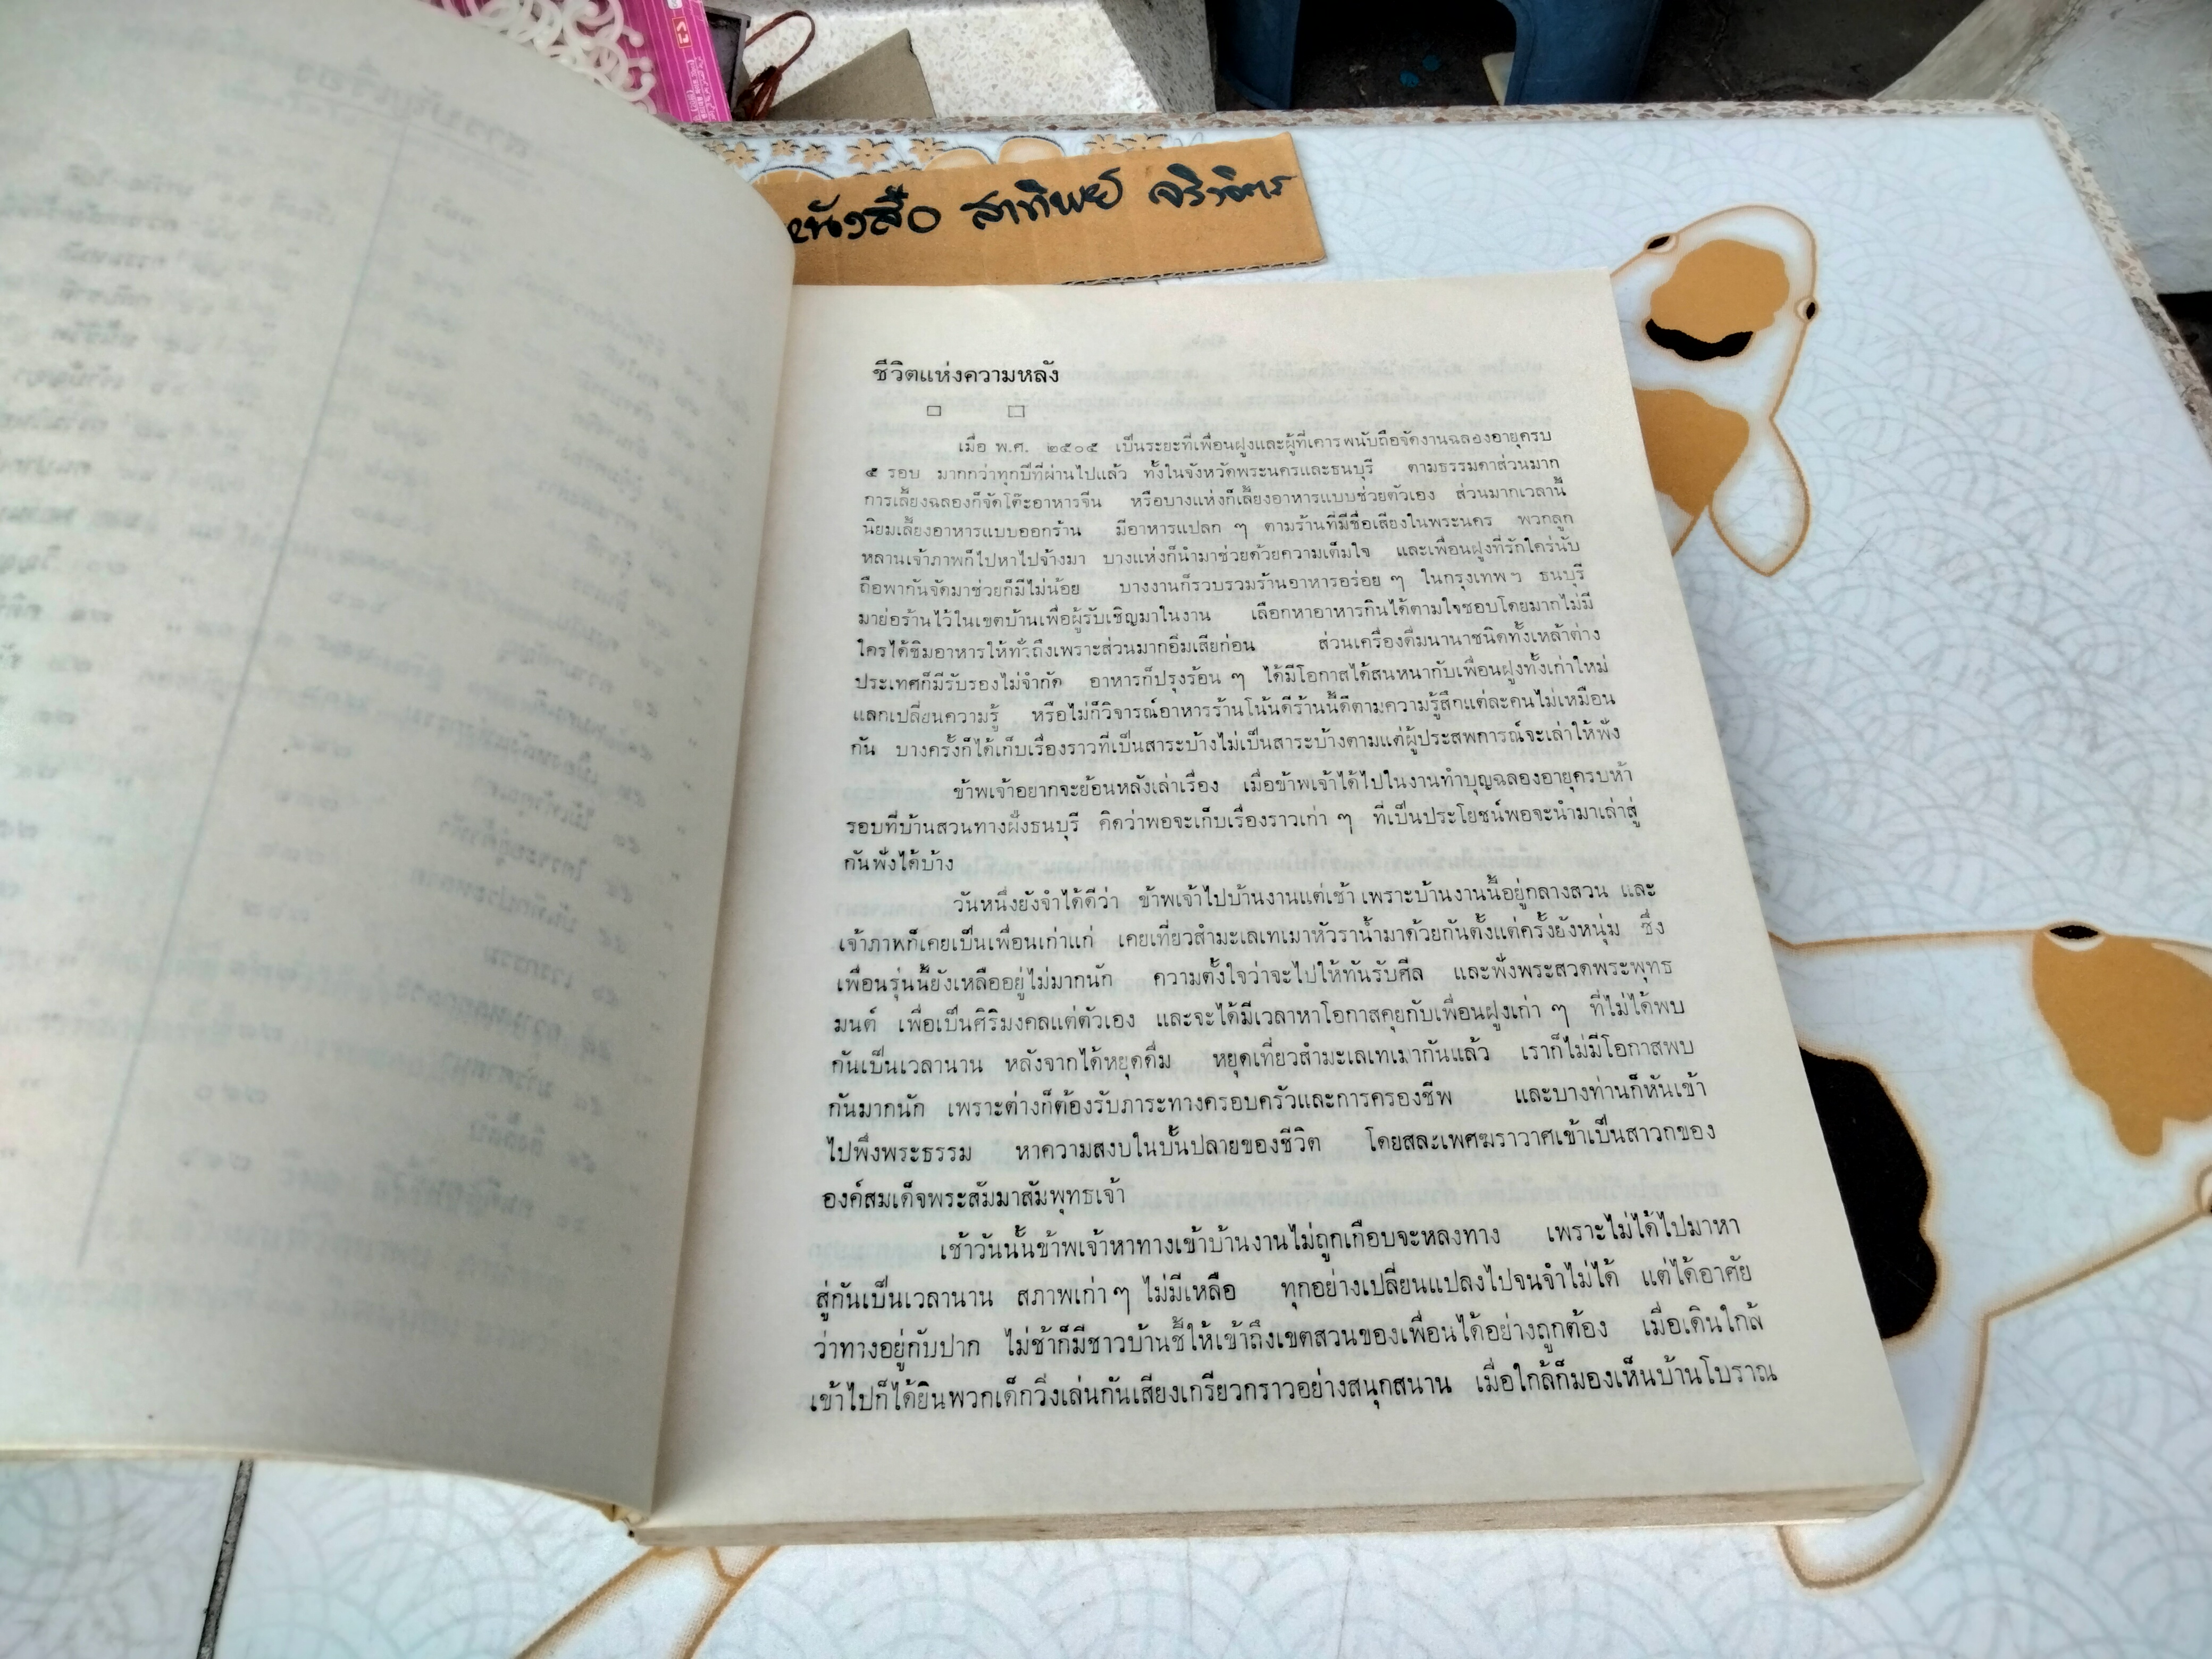 หนังสือ สาทิพย์ จริงจิตร
ชีวิตแห่งความหลัง
เมื่อ พ.ศ. ๒๕๐๕ เป็นระยะที่เพื่อนฝูงและผู้ที่เคารพนับถือจัดงานฉลองอายุครบ
๕ รอบ มากกว่าทุกปีที่ผ่านไปแล้ว ทั้งในจังหวัดพระนครและธนบุรี ตามธรรมดาส่วนมาก
การเลี้ยงฉลองก็จัดโต๊ะอาหารจีน หรือบางแห่งก็เลี้ยงอาหารแบบช่วยตัวเอง ส่วนมากเวลานี้
นิยมเลี้ยงอาหารแบบออกร้าน มีอาหารแปลก ๆ ตามร้านที่มีชื่อเสียงในพระนคร พวกลูก
หลานเจ้าภาพก็ไปหาไปจ้างมา บางแห่งก็นำมาช่วยด้วยความเต็มใจ และเพื่อนฝูงที่รักใคร่นับ
ถือพากันจัดมาช่วยก็มีไม่น้อย บางงานก็รวบรวมร้านอาหารอร่อย ๆ ในกรุงเทพฯ ธนบุรี
มาย่อร้านไว้ในเขตบ้านเพื่อผู้รับเชิญมาในงาน เลือกหาอาหารกินได้ตามใจชอบโดยมากไม่มี
ใครได้ชิมอาหารให้ทั่วถึงเพราะส่วนมากอิ่มเสียก่อน ส่วนเครื่องดื่มนานาชนิดทั้งเหล้าต่าง
ประเทศก็มีรับรองไม่จำกัด อาหารก็ปรุงร้อน ๆ ได้มีโอกาสได้สนทนากับเพื่อนฝูงทั้งเก่าใหม่
แลกเปลี่ยนความรู้ หรือไม่ก็วิจารณ์อาหารร้านโน้นดีร้านนี้ดีตามความรู้สึกแต่ละคนไม่เหมือน
กัน บางครั้งก็ได้เก็บเรื่องราวที่เป็นสาระบ้างไม่เป็นสาระบ้างตามแต่ผู้ประสพการณ์จะเล่าให้ฟัง
ข้าพเจ้าอยากจะย้อนหลังเล่าเรื่อง เมื่อข้าพเจ้าได้ไปในงานทำบุญฉลองอายุครบห้า
รอบที่บ้านสวนทางฝั่งธนบุรี คิดว่าพอจะเก็บเรื่องราวเก่า ๆ ที่เป็นประโยชน์พอจะนำมาเล่าสู่
กันฟังได้บ้าง
วันหนึ่งยังจำได้ดีว่า ข้าพเจ้าไปบ้านงานแต่เช้า เพราะบ้านงานนี้อยู่กลางสวน และ
เจ้าภาพก็เคยเป็นเพื่อนเก่าแก่ เคยเที่ยวสำมะเลเทเมาหัวราน้ำมาด้วยกันตั้งแต่ครั้งยังหนุ่ม ซึ่ง
เพื่อนรุ่นนี้ยังเหลืออยู่ไม่มากนัก ความตั้งใจว่าจะไปให้ทันรับศีล และฟังพระสวดพระพุทธ
มนต์ เพื่อเป็นศิริมงคลแต่ตัวเอง และจะได้มีเวลาหาโอกาสคุยกับเพื่อนฝูงเก่า ๆ ที่ไม่ได้พบ
กันเป็นเวลานาน หลังจากได้หยุดดื่ม หยุดเที่ยวสำมะเลเทเมากันแล้ว เราก็ไม่มีโอกาสพบ
กันมากนัก เพราะต่างก็ต้องรับภาระทางครอบครัวและการครองชีพ และบางท่านก็หันเข้า
ไปพึ่งพระธรรม หาความสงบในบั้นปลายของชีวิต โดยสละเพศฆราวาศเข้าเป็นสาวกของ
องค์สมเด็จพระสัมมาสัมพุทธเจ้า
เช้าวันนั้นข้าพเจ้าหาทางเข้าบ้านงานไม่ถูกเกือบจะหลงทาง เพราะไม่ได้ไปมาหา
สู่กันเป็นเวลานาน สภาพเก่า ๆ ไม่มีเหลือ ทุกอย่างเปลี่ยนแปลงไปจนจำไม่ได้ แต่ได้อาศัย
ว่าทางอยู่กับปาก ไม่ช้าก็มีชาวบ้านชี้ให้เข้าถึงเขตสวนของเพื่อนได้อย่างถูกต้อง เมื่อเดินใกล้
เข้าไปก็ได้ยินพวกเด็กวิ่งเล่นกันเสียงเกรียวกราวอย่างสนุกสนาน เมื่อใกล้ก็มองเห็นบ้านโบราณ